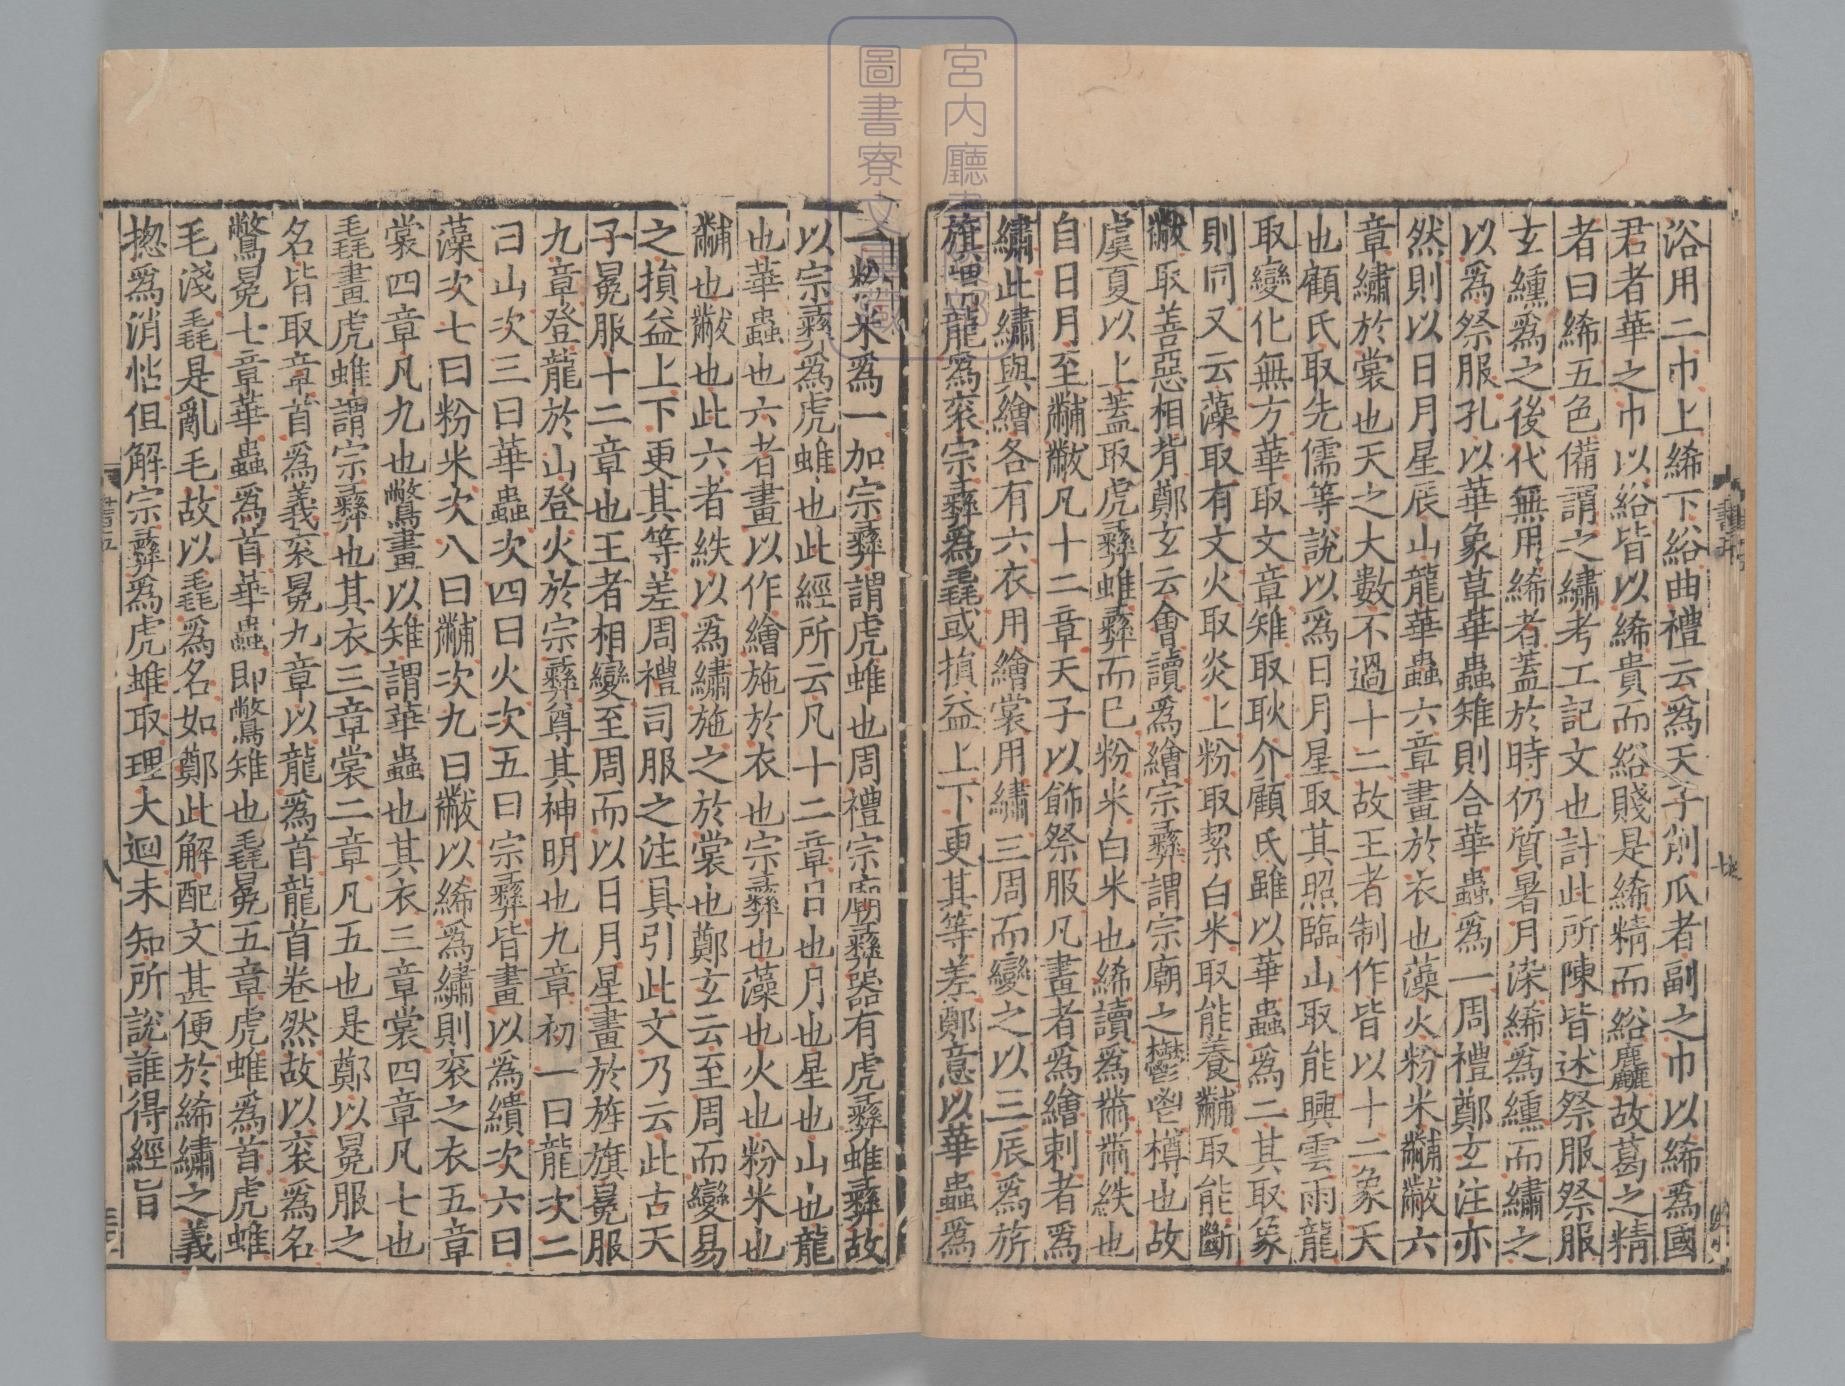 浴用二巾上絺下綌曲禮云為天子削瓜者副之巾以絺為國
君者華之巾以綌皆以絺貴而綌賤是絺精而綌麤故葛之精
者曰絺五色備謂之繡考工記文也計此所陳皆述祭服祭服
玄纁為之後代無用絺者蓋於時仍質暑月染絺為纁而繡之
以為祭服孔以華象草華蟲雉則合華蟲為一周禮鄭玄注亦
然則以日月星辰山龍華蟲六章畫於衣也藻火粉米黼黻六
章繡於裳也天之大數不過十二故王者制作皆以十二象天
也顧氏取先儒等說以為日月星取其照臨山取能興雲雨龍
取變化無方華取文章雉取耿介顧氏雖以華蟲為二其取象
則同又云藻取有文火取炎上粉取絜白米取能養黼取能斷
黻取善惡相背鄭玄云會讀為繪宗彞謂宗廟之鬱鬯樽也故
虞夏以上蓋取虎彞蜼彞而已粉米白米也絺讀為黹黹紩也
自日月至黼黻凡十二章天子以飾祭服凡畫者為繪刺者為
繡此繡與繪各有六衣用繪裳用繡三周而變之以三辰為旂
旗謂龍為衮宗彞為毳或損益上下更其等差鄭意以華蟲為
一粉米為一加宗彞謂虎蜼也周禮宗廟彞器有虎彞蜼彞故
以宗彞為虎蜼也此經所云凡十二章日也月也星也山也龍
也華蟲也六者畫以作繪施於衣也宗彞也藻也火也粉米也
黼也黻也此六者紩以為繡施之於裳也鄭玄云至周而變易
之損益上下更其等差周禮司服之注具引此文乃云此古天
子冕服十二章也王者相變至周而以日月星畫於旌旗冕服
九章登龍於山登火於宗彞尊其神明也九章初一曰龍次二
曰山次三曰華蟲次四曰火次五曰宗彞皆畫以為繢次六曰
藻次七曰粉米次八曰黼次九曰黻以絺為繡則衮之衣五章
裳四章凡九也鷩畫以雉謂華蟲也其衣三章裳四章凡七也
毳畫虎蜼謂宗彞也其衣三章裳二章凡五也是鄭以冕服之
名皆取章首為義衮冕九章以龍為首龍首卷然故以衮為名
鷩冕七章華蟲為首華蟲即鷩雉也毳冕五章虎蜼為首虎蜼
毛淺毳是亂毛故以毳為名如鄭此解配文甚便於絺繡之義
揔為消帖但解宗彞為虎蜼取理大迴未知所說誰得經旨
書五
八
宮内廳書陵部
圖書寮文庫藏